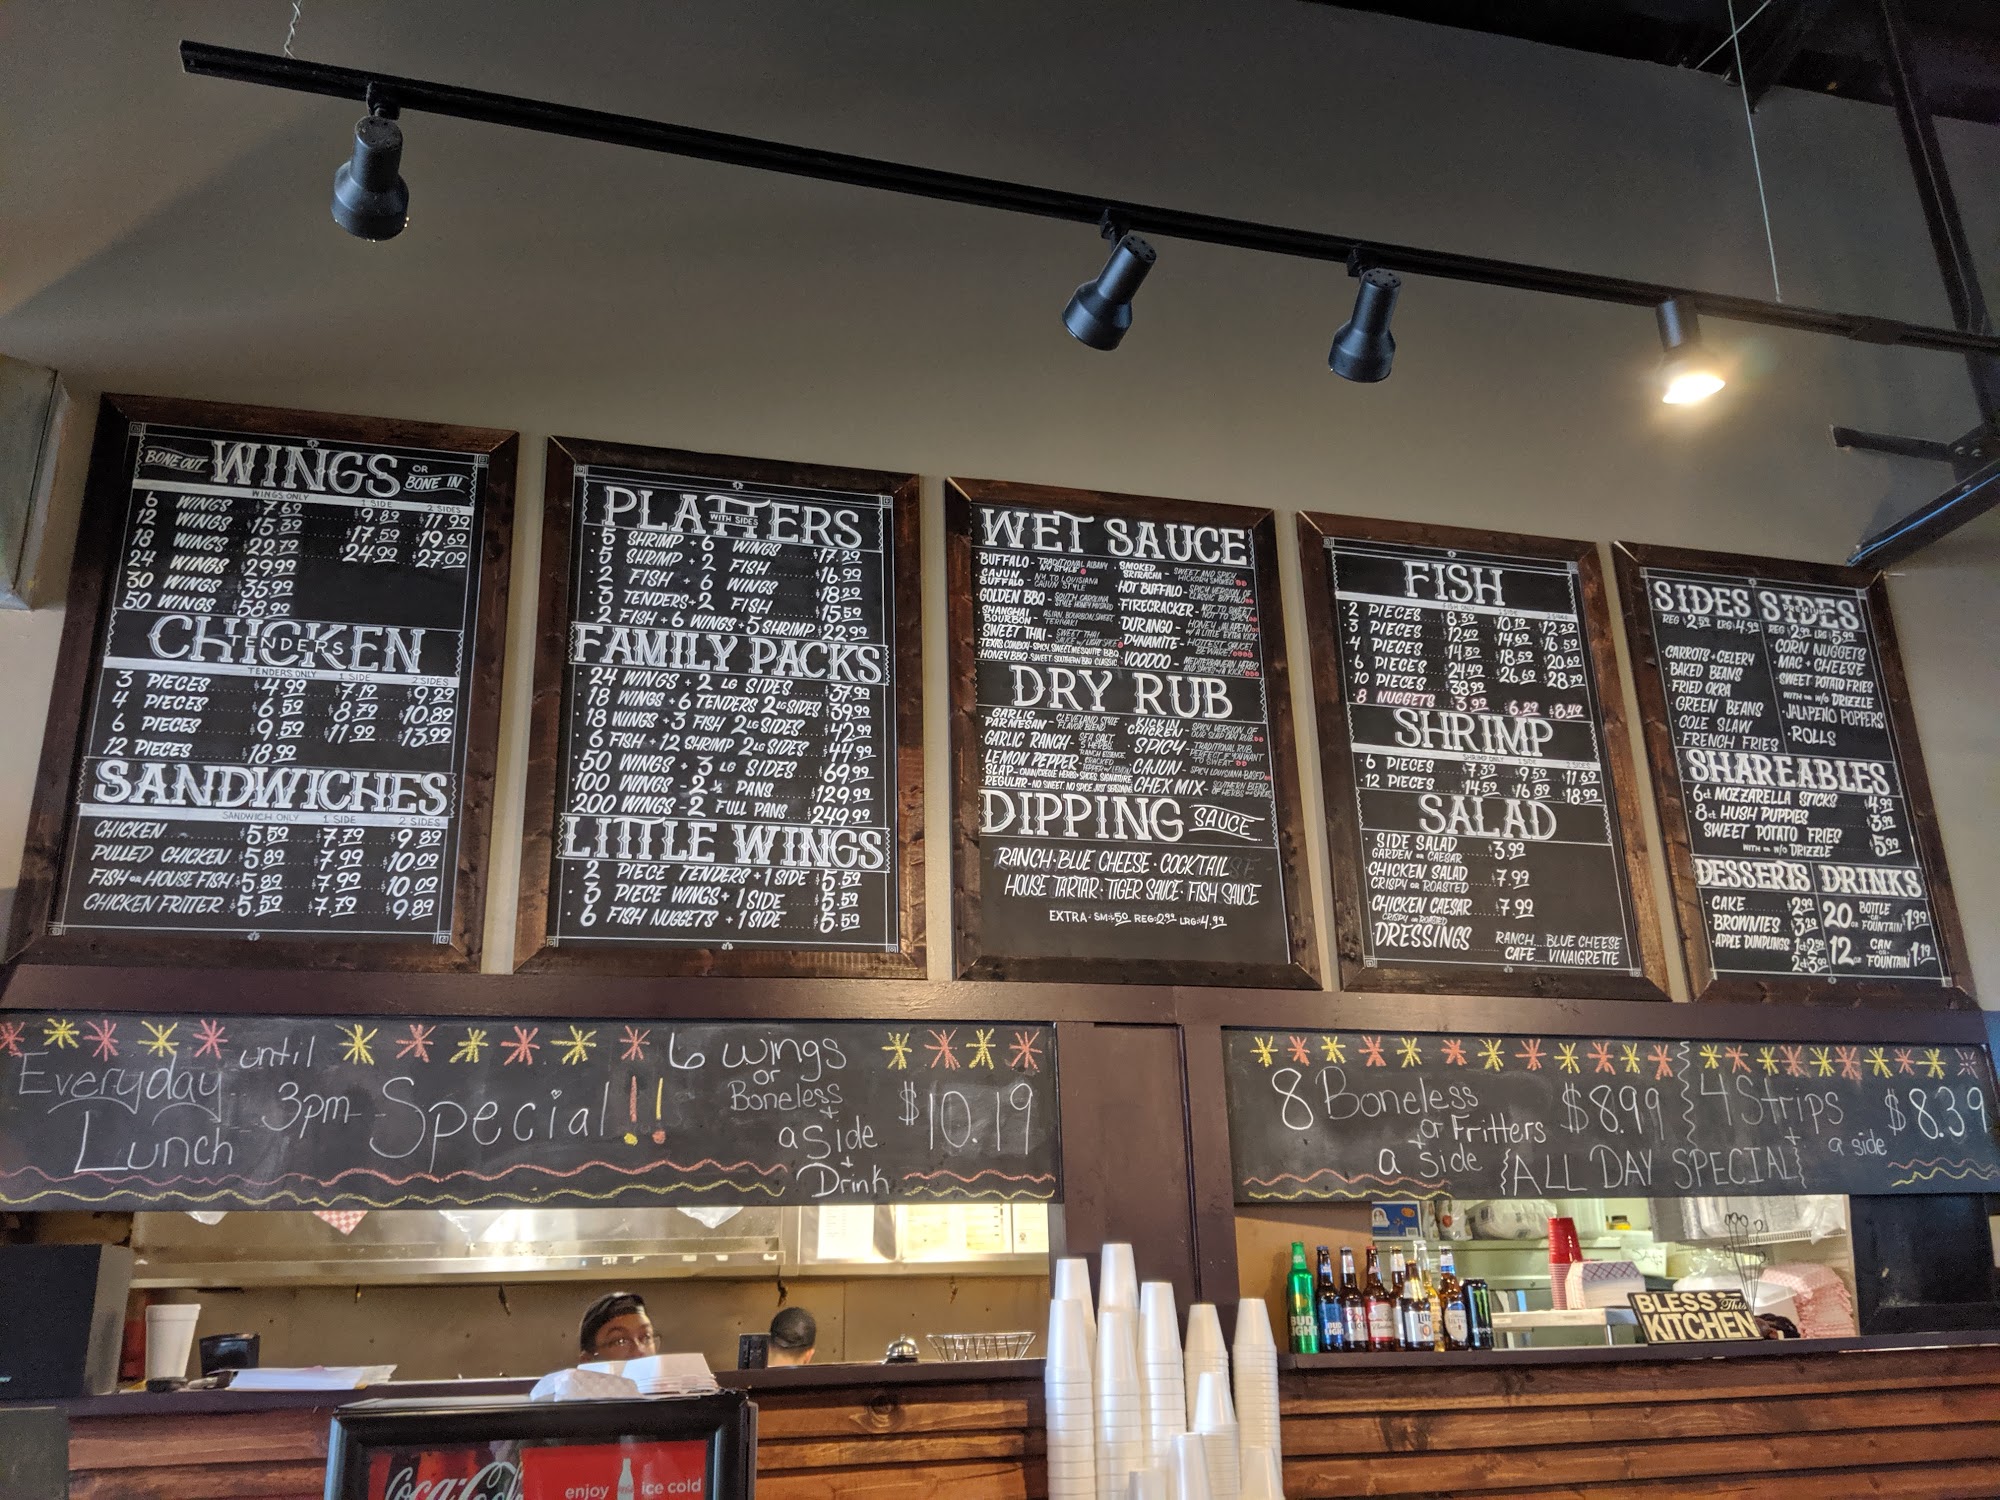 BONE OUT WINGS OR BONE IN
WINGS ONLY 1 SIDE 2 SIDES
6 WINGS $7.69 $9.89 $11.99
12 WINGS $15.39 $17.59 $19.69
18 WINGS $22.79 $24.99 $27.09
24 WINGS $29.99
30 WINGS $35.99
50 WINGS $58.99
CHICKEN TENDERS
TENDERS ONLY 1 SIDE 2 SIDES
3 PIECES $4.99 $7.19 $9.29
4 PIECES $6.59 $8.79 $10.89
6 PIECES $9.59 $11.99 $13.99
12 PIECES $18.99
SANDWICHES
SANDWICH ONLY 1 SIDE 2 SIDES
CHICKEN $5.59 $7.79 $9.89
PULLED CHICKEN $5.89 $7.99 $10.09
FISH OR HOUSE FISH $5.89 $7.99 $10.09
CHICKEN FRITTER $5.59 $7.79 $9.89
PLATTERS
WITH SIDES
5 SHRIMP + 6 WINGS $17.29
5 SHRIMP + 2 FISH $16.99
2 FISH + 6 WINGS $18.29
3 TENDERS + 2 FISH $15.59
2 FISH + 6 WINGS + 5 SHRIMP $22.99
FAMILY PACKS
24 WINGS + 2 LG SIDES $37.99
18 WINGS + 6 TENDERS 2 LG SIDES $39.99
18 WINGS + 3 FISH 2 LG SIDES $42.99
6 FISH + 12 SHRIMP 2 LG SIDES $44.99
50 WINGS + 3 LG SIDES $69.99
100 WINGS - 2 ½ PANS $129.99
200 WINGS - 2 FULL PANS $249.99
LITTLE WINGS
2 PIECE TENDERS + 1 SIDE $5.59
3 PIECE WINGS + 1 SIDE $5.59
6 FISH NUGGETS + 1 SIDE $5.59
WET SAUCE
BUFFALO - TRADITIONAL ALBANY NY STYLE
CAJUN BUFFALO - NY TO LOUISIANA CAJUN STYLE
GOLDEN BBQ - SOUTH CAROLINA STYLE HONEY MUSTARD
SHANGHAI BOURBON - ASIAN, BOURBON, SWEET, TERIYAKI
SWEET THAI - SWEET THAI
TEXAS COWBOY - SPICY, SWEET, MESQUITE BBQ
HONEY BBQ - SWEET, SOUTHERN BBQ CLASSIC
SMOKED SRIRACHA - SWEET AND SPICY HICKORY SMOKED
HOT BUFFALO - SPICY VERSION OF CLASSIC BUFFALO
FIRECRACKER - HOT TO SWEET TO SPICY
DURANGO - HONEY, JALAPEÑO W/ A LITTLE EXTRA KICK
DYNAMITE - HOTTEST SAUCE! BEWARE!
VOODOO - MEDITERRANEAN HERBS AND SPICES
DRY RUB
GARLIC PARMESAN - CLEVELAND STYLE FLAVOR BLEND
GARLIC RANCH - SEA SALT & HERBS, RANCH ESSENCE
LEMON PEPPER - CRACKED PEPPER
SLAP - CAJUN/CREOLE HERBS + SPICES, SIGNATURE
REGULAR - NO SWEET, NO SPICE, JUST SEASONING
KICKIN CHICKEN - SPICY VERSION OF OUR SLAP DRY RUB
SPICY - TRADITIONAL RUB, PERFECT IF YOU WANT TO SWEAT
CAJUN - SPICY LOUISIANA-BASED
CHEX MIX - SOUTHERN BLEND OF HERBS AND SPICES
DIPPING SAUCE
RANCH · BLUE CHEESE · COCKTAIL
HOUSE TARTAR · TIGER SAUCE · FISH SAUCE
EXTRA - SM $.50 REG $2.99 LRG $4.99
FISH
FISH ONLY 1 SIDE 2 SIDES
2 PIECES $8.39 $10.19 $12.29
3 PIECES $12.49 $14.69 $16.59
4 PIECES $14.39 $18.59 $20.69
6 PIECES $24.49 $26.69 $28.79
10 PIECES $38.99
8 NUGGETS $3.99 $6.29 $8.49
SHRIMP
SHRIMP ONLY 1 SIDE 2 SIDES
6 PIECES $7.39 $9.59 $11.69
12 PIECES $14.59 $16.89 $18.99
SALAD
SIDE SALAD $3.99
GARDEN OR CAESAR
CHICKEN SALAD $7.99
CRISPY OR ROASTED
CHICKEN CAESAR $7.99
CRISPY OR ROASTED
DRESSINGS RANCH... BLUE CHEESE
CAFE... VINAIGRETTE
SIDES
REG $2.59 LRG $4.99
CARROTS + CELERY
BAKED BEANS
FRIED OKRA
GREEN BEANS
COLE SLAW
FRENCH FRIES
SIDES
PREMIUM
REG $2.99 LRG $5.99
CORN NUGGETS
MAC + CHEESE
SWEET POTATO FRIES
WITH OR W/O DRIZZLE
JALAPEÑO POPPERS
ROLLS
SHAREABLES
6 CT MOZZARELLA STICKS $4.99
8 CT HUSH PUPPIES $3.99
SWEET POTATO FRIES $5.99
WITH OR W/O DRIZZLE
DESSERTS
CAKE $2.99
BROWNIES $3.29
APPLE DUMPLINGS 1 CT $2.59
2 CT
DRINKS
20 OZ BOTTLE OR FOUNTAIN $1.99
12 OZ CAN OR FOUNTAIN $1.19
Everyday Lunch until 3pm Special!!
6 Wings or Boneless + a Side + Drink $10.19
8 Boneless or Fritters + a side $8.99
4 Strips + a side $8.39
ALL DAY SPECIAL
BUD LIGHT
BLESS This KITCHEN
Coca-Cola
enjoy ice cold